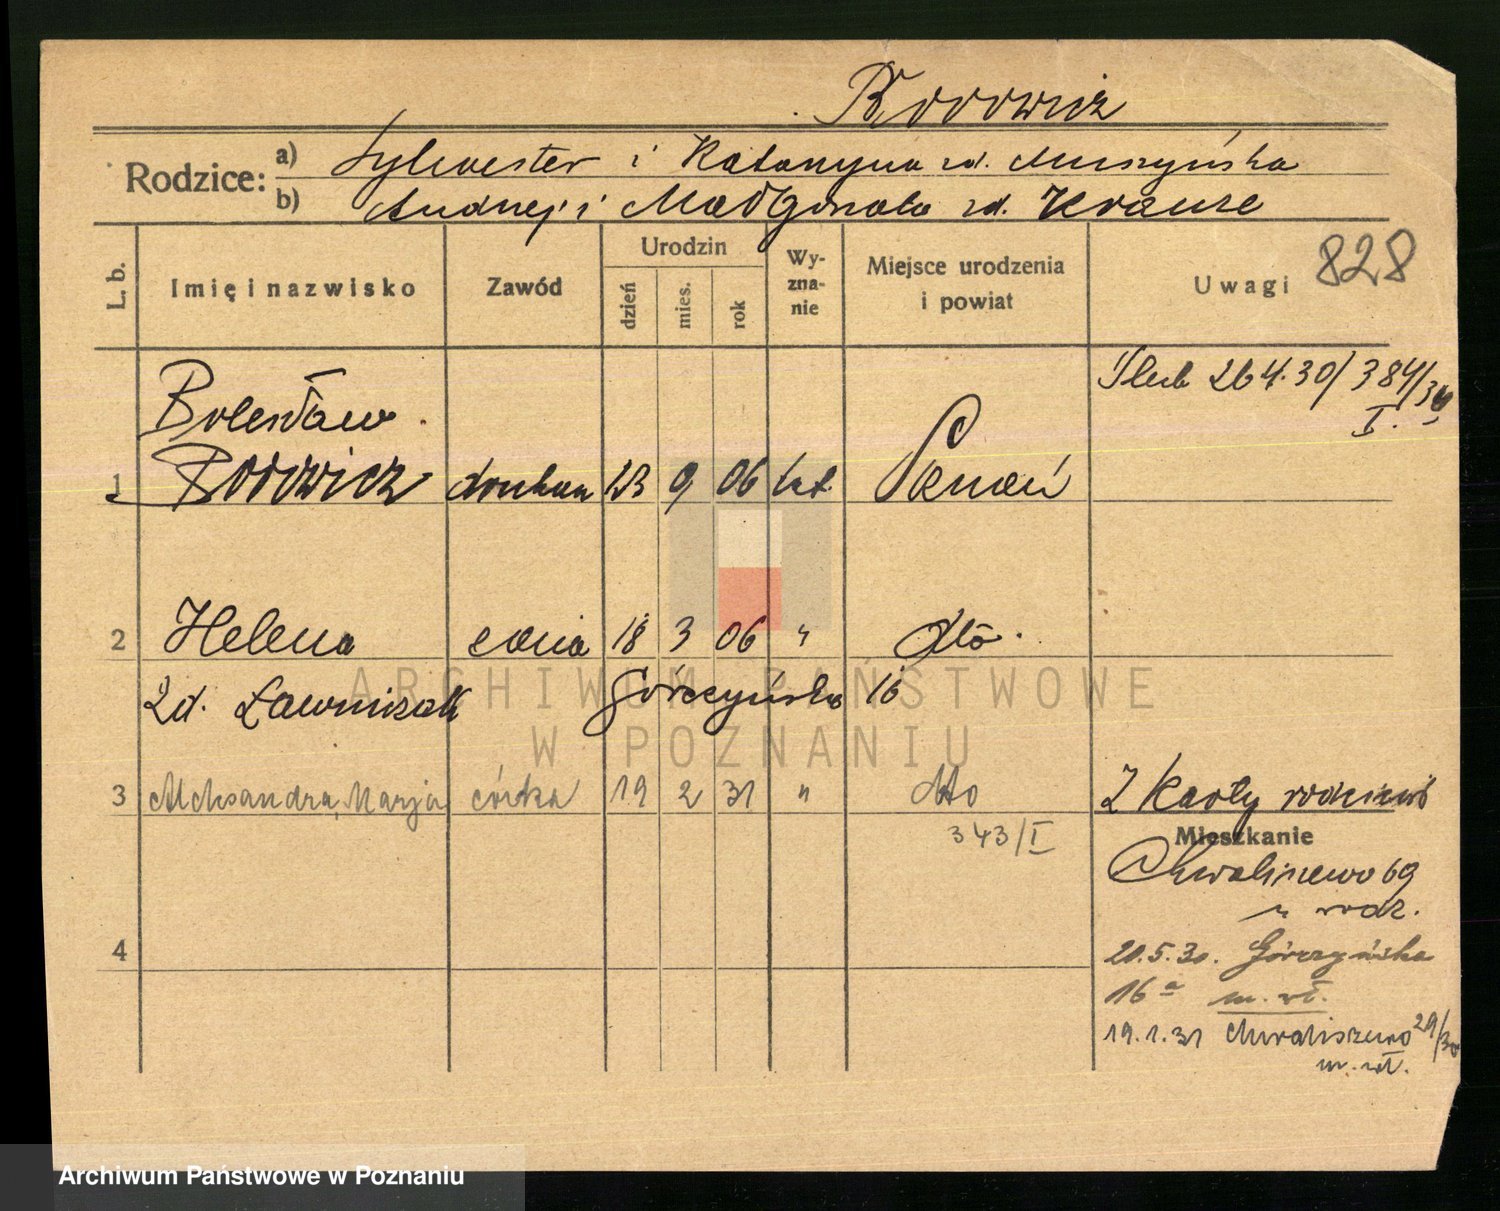 Borowicz
Rodzice: a) Sylwester i Katarzyna zd. Muszyńska
b) Andrzej i Małgorzata zd. Krause
L. b. Imię i nazwisko Zawód Urodzin dzień mies. rok Wyznanie Miejsce urodzenia i powiat Uwagi 828
Ślub 26.4.30/384/30
I.
Bolesław
1 Borowicz drukarz 23 9 06 kat. Poznań
2 Helena żona 18 3 06 " dto.
zd. Ławniczak Górczyńska 16
3 Aleksandra, Marja córka 19 2 31 " dto Z karty rodziców
343/I
Mieszkanie
Chwaliszewo 69
u rodz.
4
20.5.30. Górczyńska
16a m. wł.
19.1.31 Chwaliszewo 29/30
m. wł.
ARCHIWUM PAŃSTWOWE
W POZNANIU
Archiwum Państwowe w Poznaniu